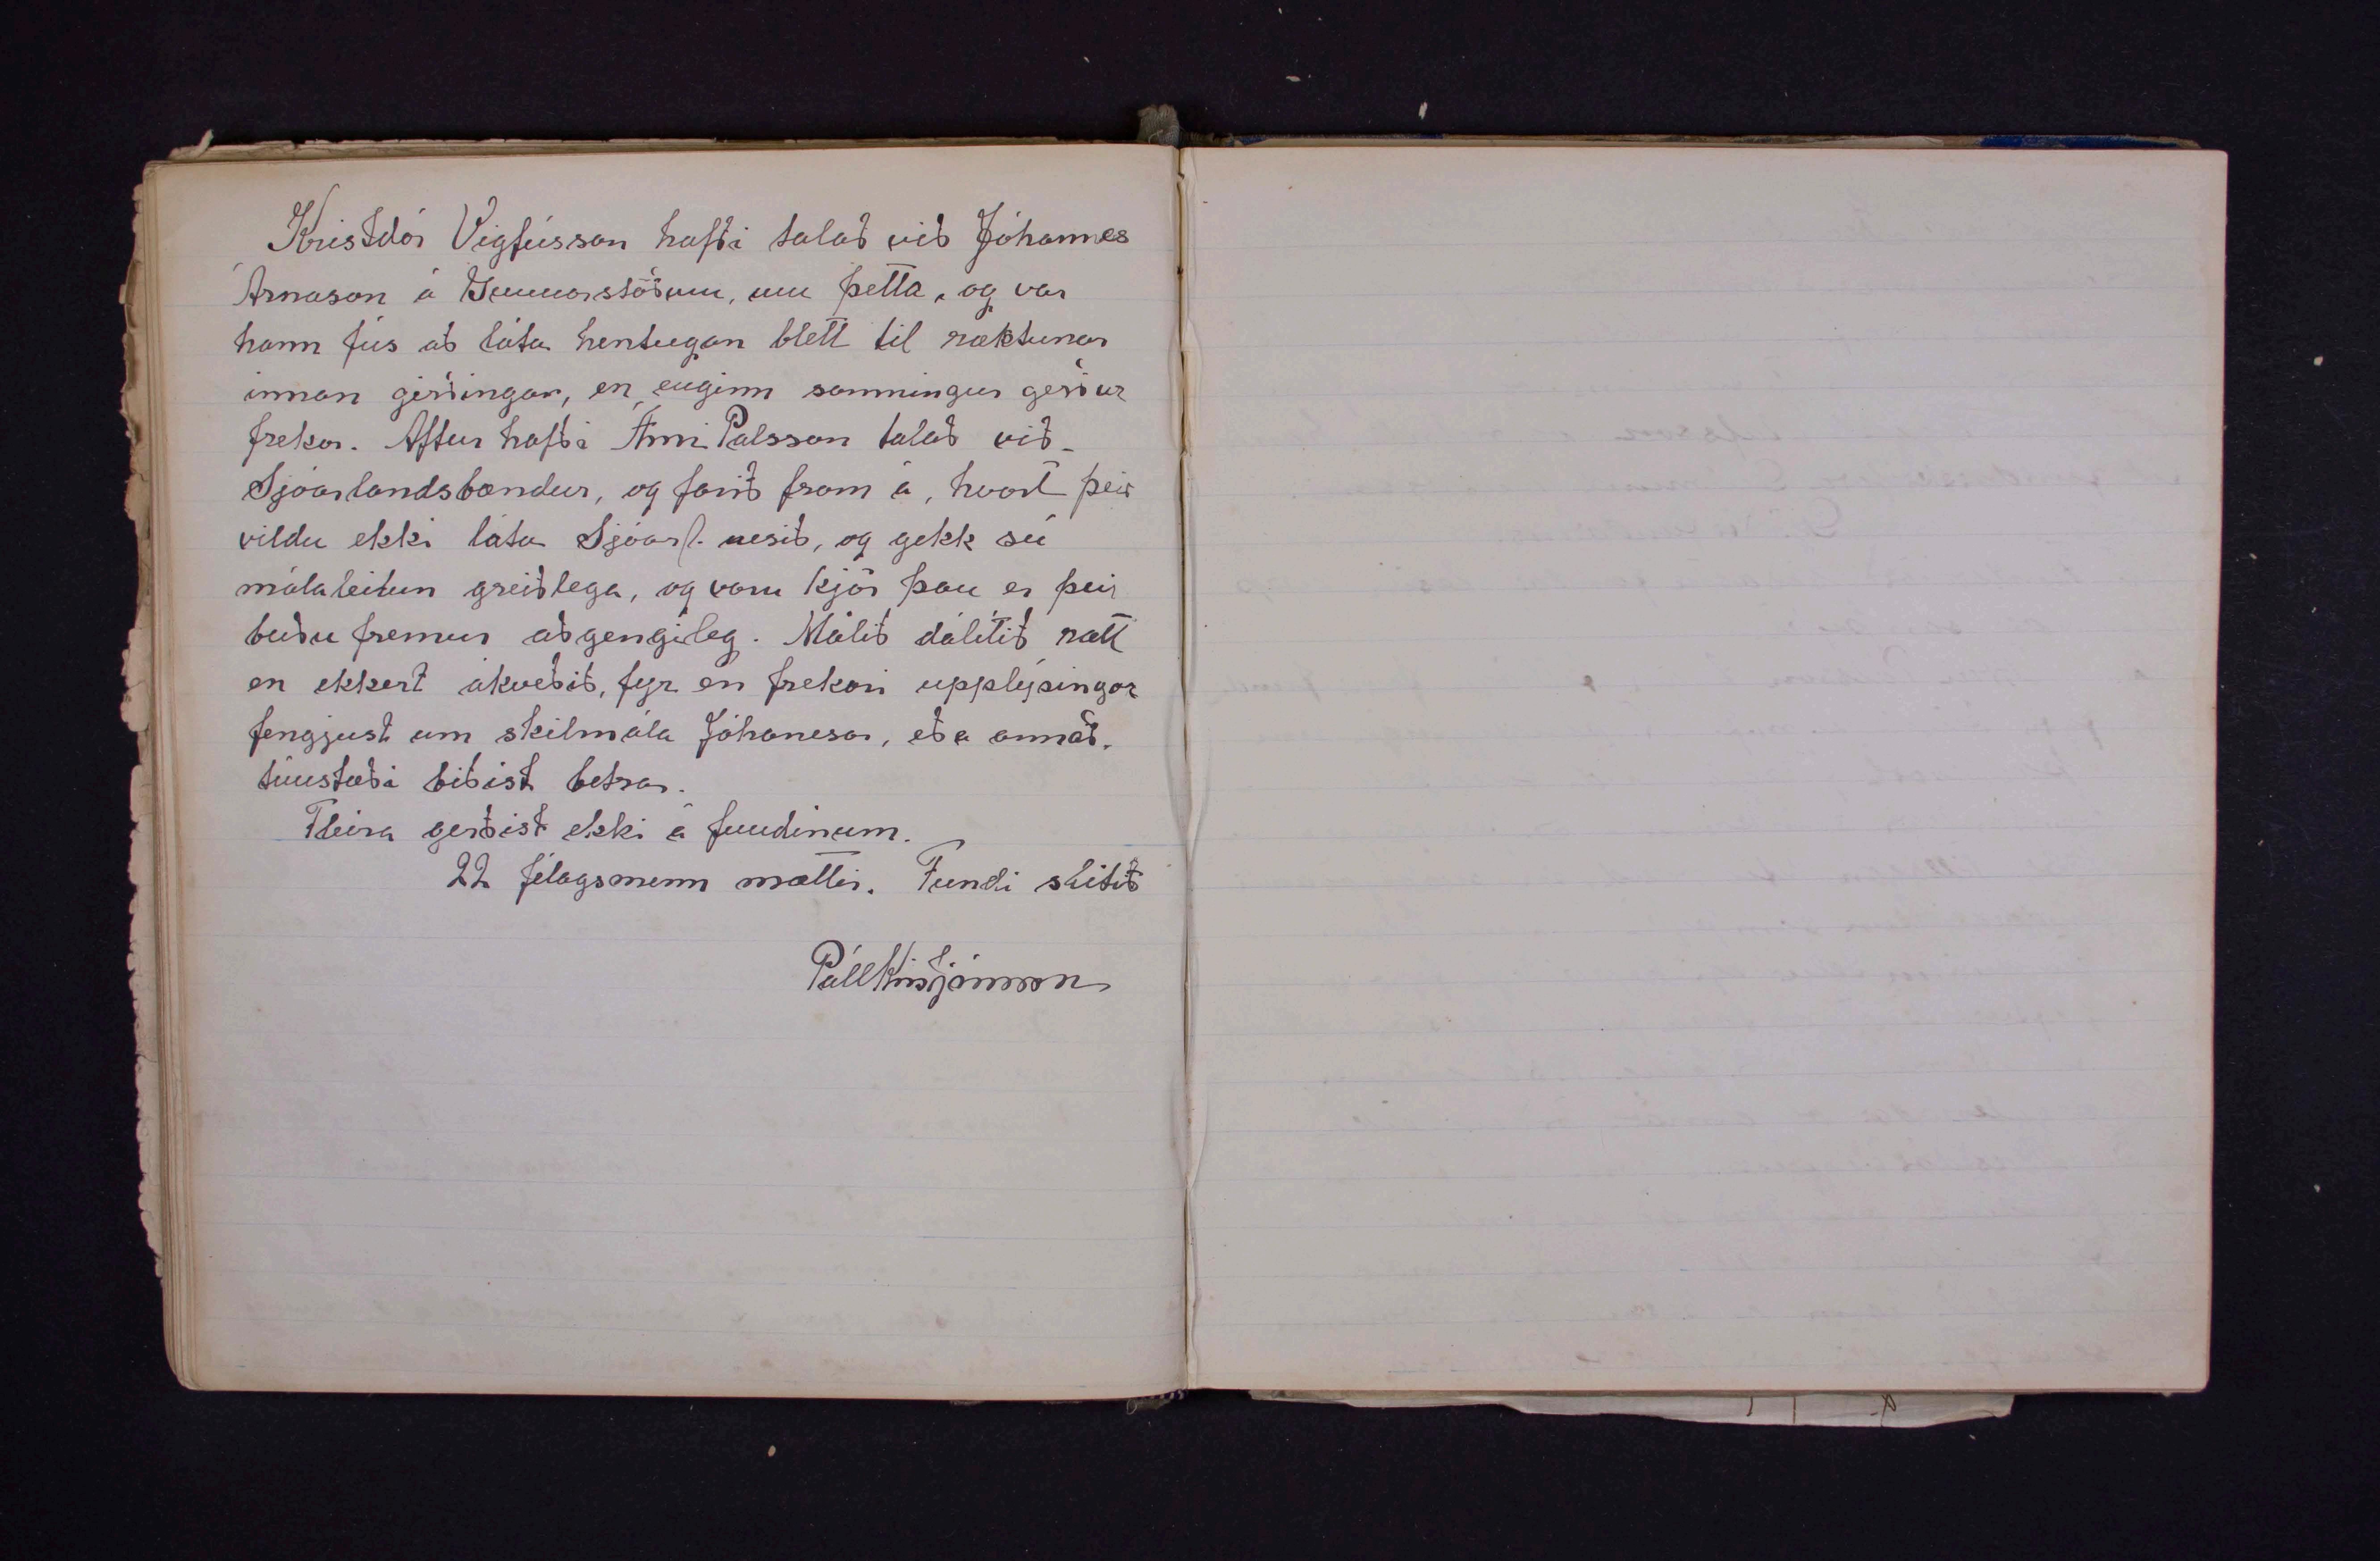 Kristdór Vigfússon hafði talað við Jóhannes
Árnason á Gunnarstöðum, um þetta, og var
hann fús að láta hentugan blett til ræktunar
innan girðingar, en enginn samningur gerður
frekar. Aftur hafði Árni Pálsson talað við
Sjóarlandsbændur, og farið fram á, hvort þeir
vildu ekki láta Sjóarl. nesið, og gekk sú
málaleitun greiðlega, og voru kjör þau er þeir
buðu fremur aðgengileg. Málið dálítið rætt
en ekkert ákveðið, fyr en frekari upplýsingar
fengjust um skilmála Jóhanesar, eða annað.
túnstæði biðist betra.
Fleira gerðist ekki á fundinum.
22 félagsmenn mættir. Fundi slitið
Páll Kristjánsson